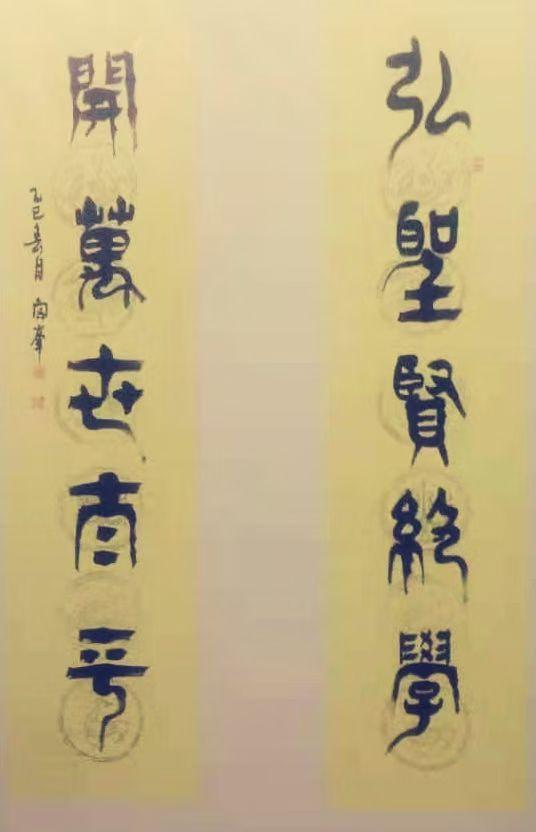 弘聖賢絕學
開萬世太平
乙巳春月